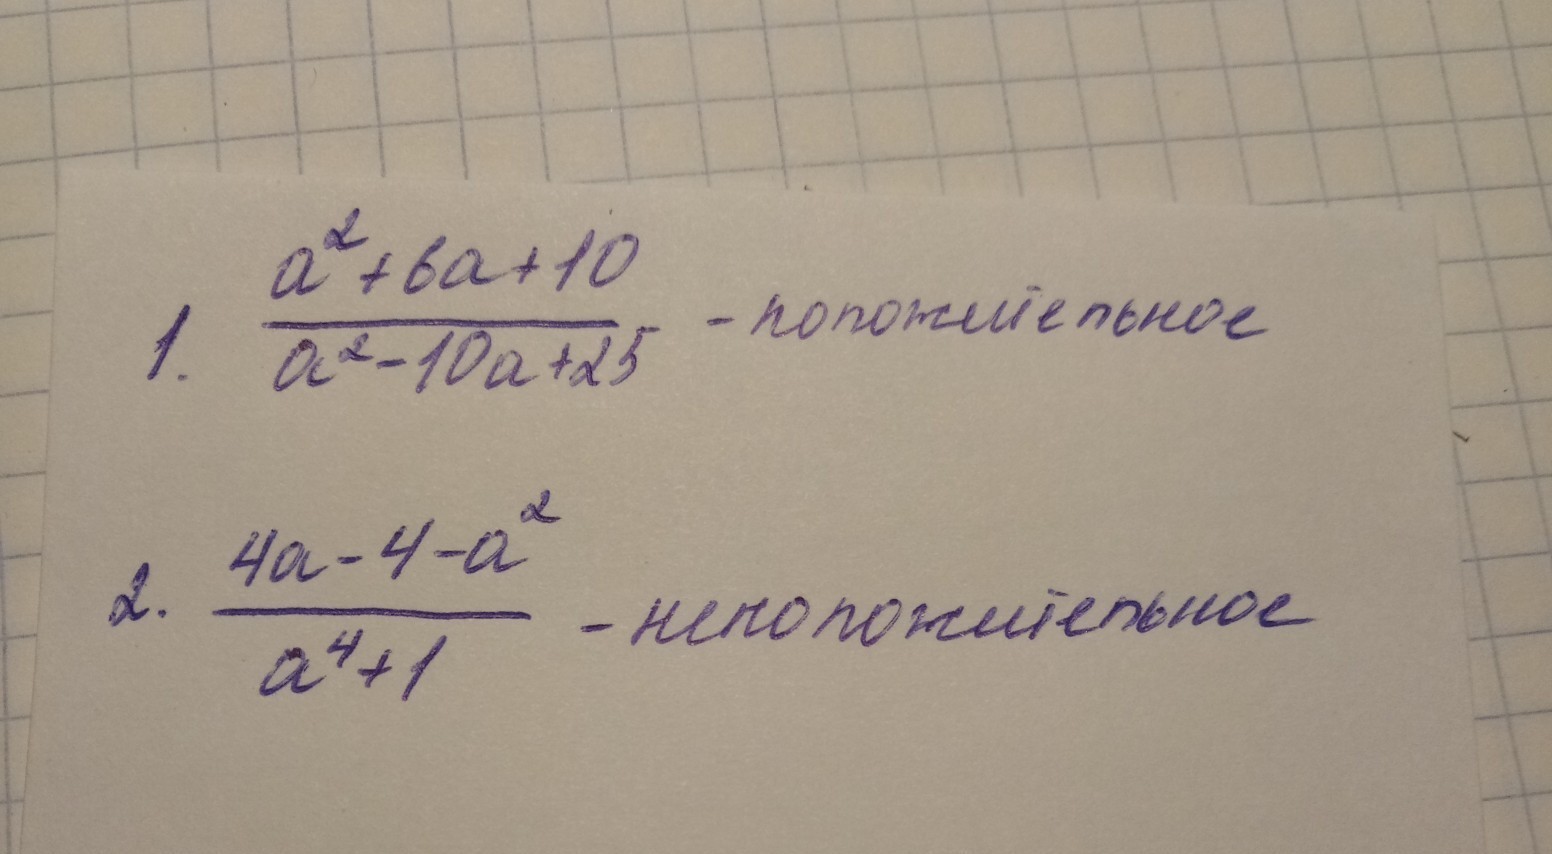 1. (a²+6a+10)/(a²-10a+25) - положительное
2. (4a-4-a²)/(a⁴+1) - неположительное